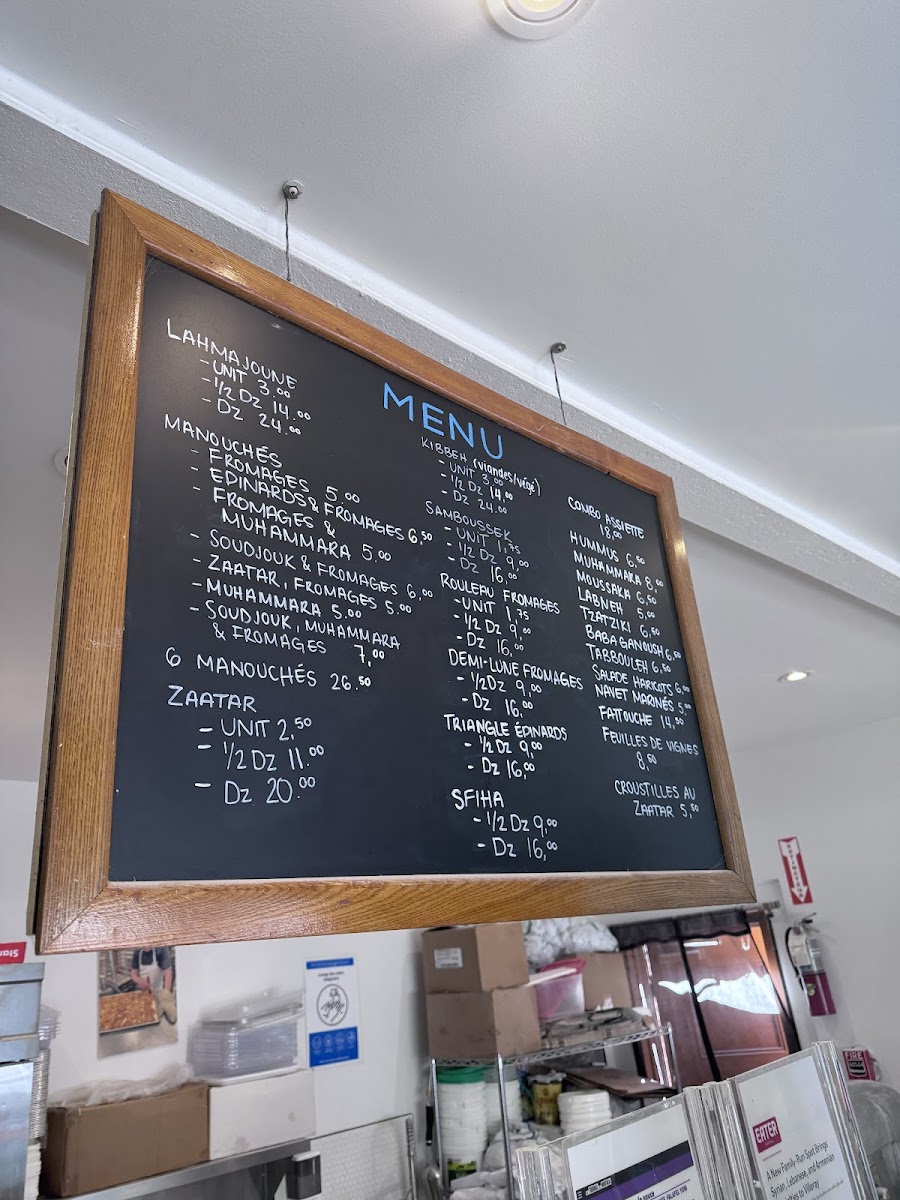 MENU
LAHMAJOUNE
- UNIT 3.00
- 1/2 Dz 14.00
- Dz 24.00
MANOUCHÉS
- FROMAGES 5.00
- EPINARDS & FROMAGES 6,50
- FROMAGES &
MUHAMMARA 5.00
- SOUDJOUK & FROMAGES 6,00
- ZAATAR, FROMAGES 5.00
- MUHAMMARA 5.00
- SOUDJOUK, MUHAMMARA
& FROMAGES 7,00
6 MANOUCHÉS 26.50
ZAATAR
- UNIT 2,50
- 1/2 Dz 11.00
- Dz 20.00
KIBBEH (viandes/végé)
- UNIT 3.00
- 1/2 Dz 14,00
- Dz 24,00
SAMBOUSSEK
- UNIT 1,75
- 1/2 Dz 9,00
- Dz 16,00
ROULEAU FROMAGES
- UNIT 1,75
- 1/2 Dz 9,00
- Dz 16,00
DEMI-LUNE FROMAGES
- 1/2 Dz 9,00
- Dz 16,00
TRIANGLE ÉPINARDS
- 1/2 Dz 9,00
- Dz 16,00
SFIHA
- 1/2 Dz 9,00
- Dz 16,00
COMBO ASSIETTE
18,00
HUMMUS 6,50
MUHAMMARA 8,00
MOUSSAKA 6,50
LABNEH 5,00
TZATZIKI 6,50
BABA GANOUSH 6,50
TABBOULEH 6,50
SALADE HARICOTS 6,00
NAVET MARINÉS 5,00
FATTOUCHE 14,50
FEUILLES DE VIGNES
8,50
CROUSTILLES AU
ZAATAR 5,50
FIRE
EATER
A New Family-Run Spot Brings
Syrian, Lebanese, and Armenian
to Villeray